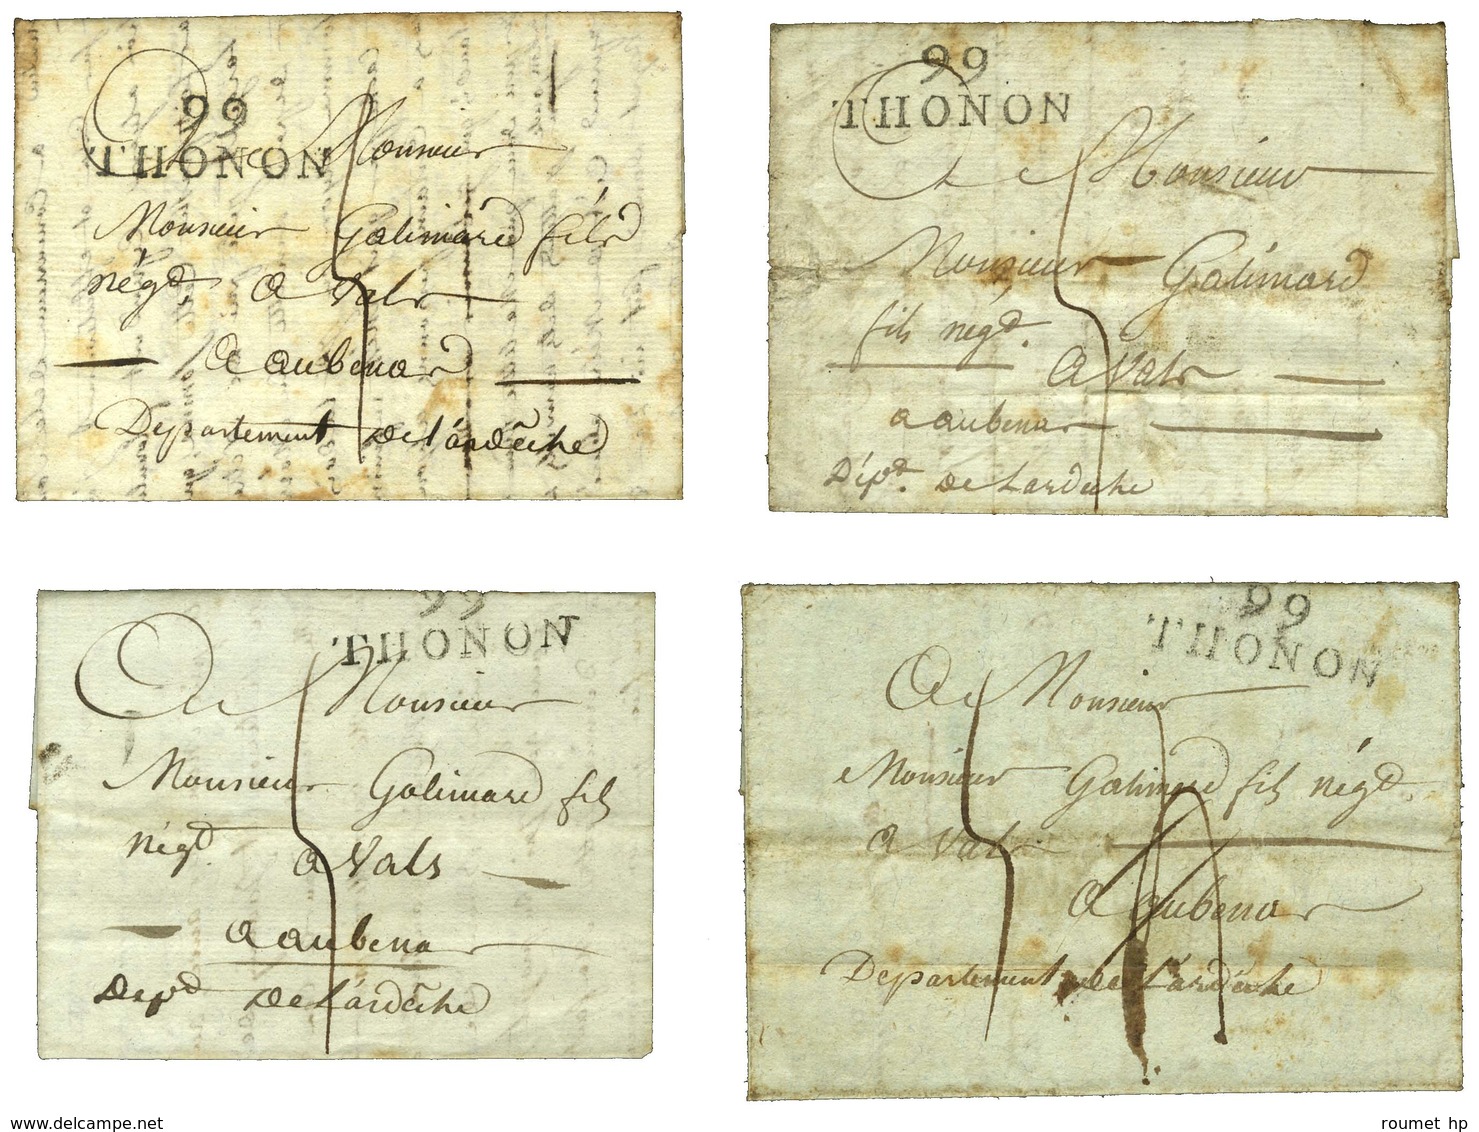 99
THONON
A Monsieur
Monsieur Galimard fils
négt. a Vals
a aubenas
Departement de L'ardêche
99
THONON
A Monsieur
Monsieur Galimard
fils négt.
a Vals
a aubenas
Dépt. de Lardeche
99
THONON
A Monsieur
Monsieur Galimard fils
négt. a Vals
a aubena
Dept de L'ardêche
99
THONON
A Monsieur
Monsieur Galimard fils négt.
a Vals
a aubenas
Departement de L'ardêche
roumet hp